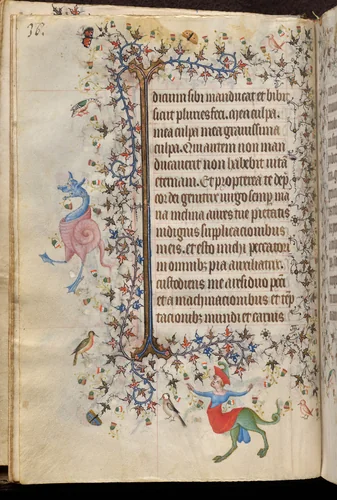 36.
dicium sibi manducat et bibit
sicut plures feci. Mea culpa.
mea culpa mea gravissima
culpa. Qui autem non man
ducaverit non habebit vitã
eternam. Et propterea te dep̃
cor dei genitrix virgo semp̃ ma
ria inclina aures tue pietatis
indignis supplicacionibus
meis. et esto michi peccatori
in omnibʒ pia auxiliatrix.
custodiens me assiduo
et a machinacionibus et tẽp
tacionibʒ mundi et carnis